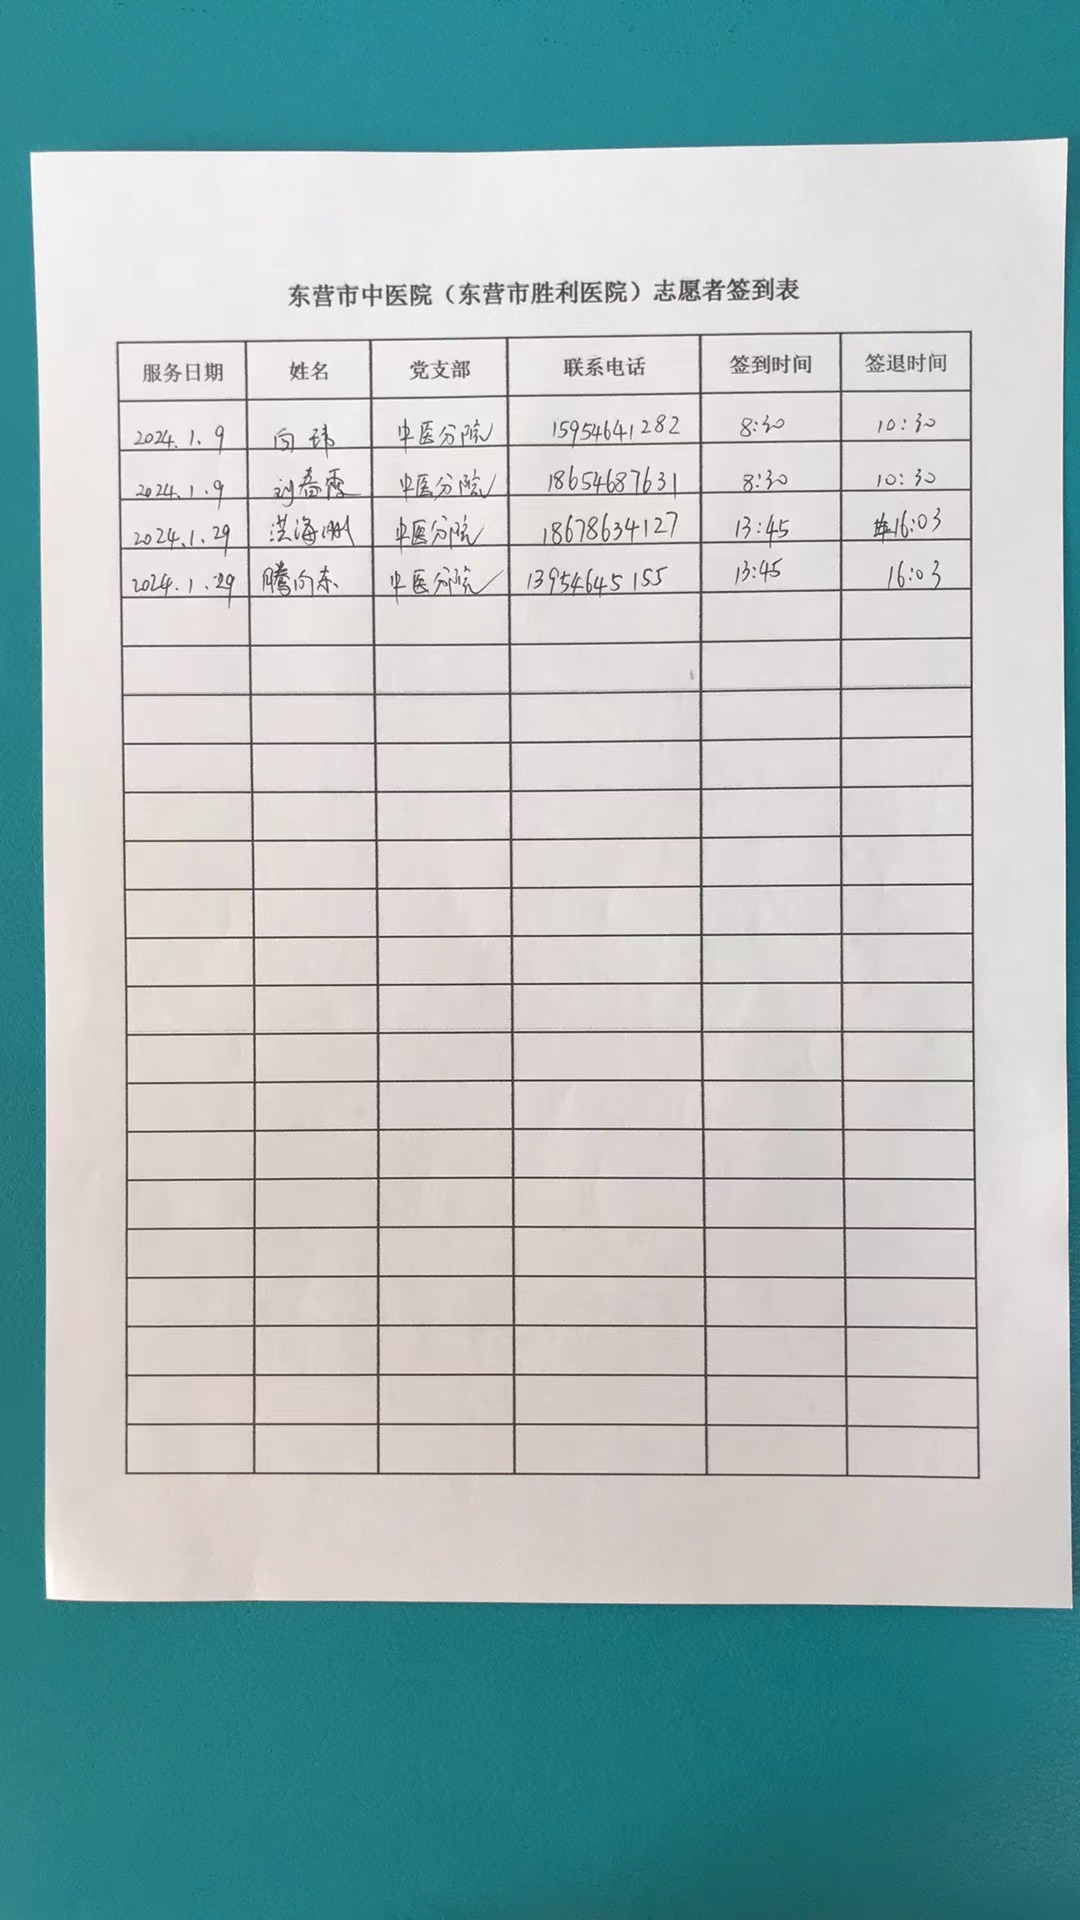 东营市中医院（东营市胜利医院）志愿者签到表
服务日期 姓名 党支部 联系电话 签到时间 签退时间
2024.1.9 向玮 中医分院 15954641282 8:30 10:30
2024.1.9 刘春霞 中医分院 18654687631 8:30 10:30
2024.1.29 洪海 中医分院 18678634127 13:45 16:03
2024.1.29 腾向东 中医分院 13954645155 13:45 16:03